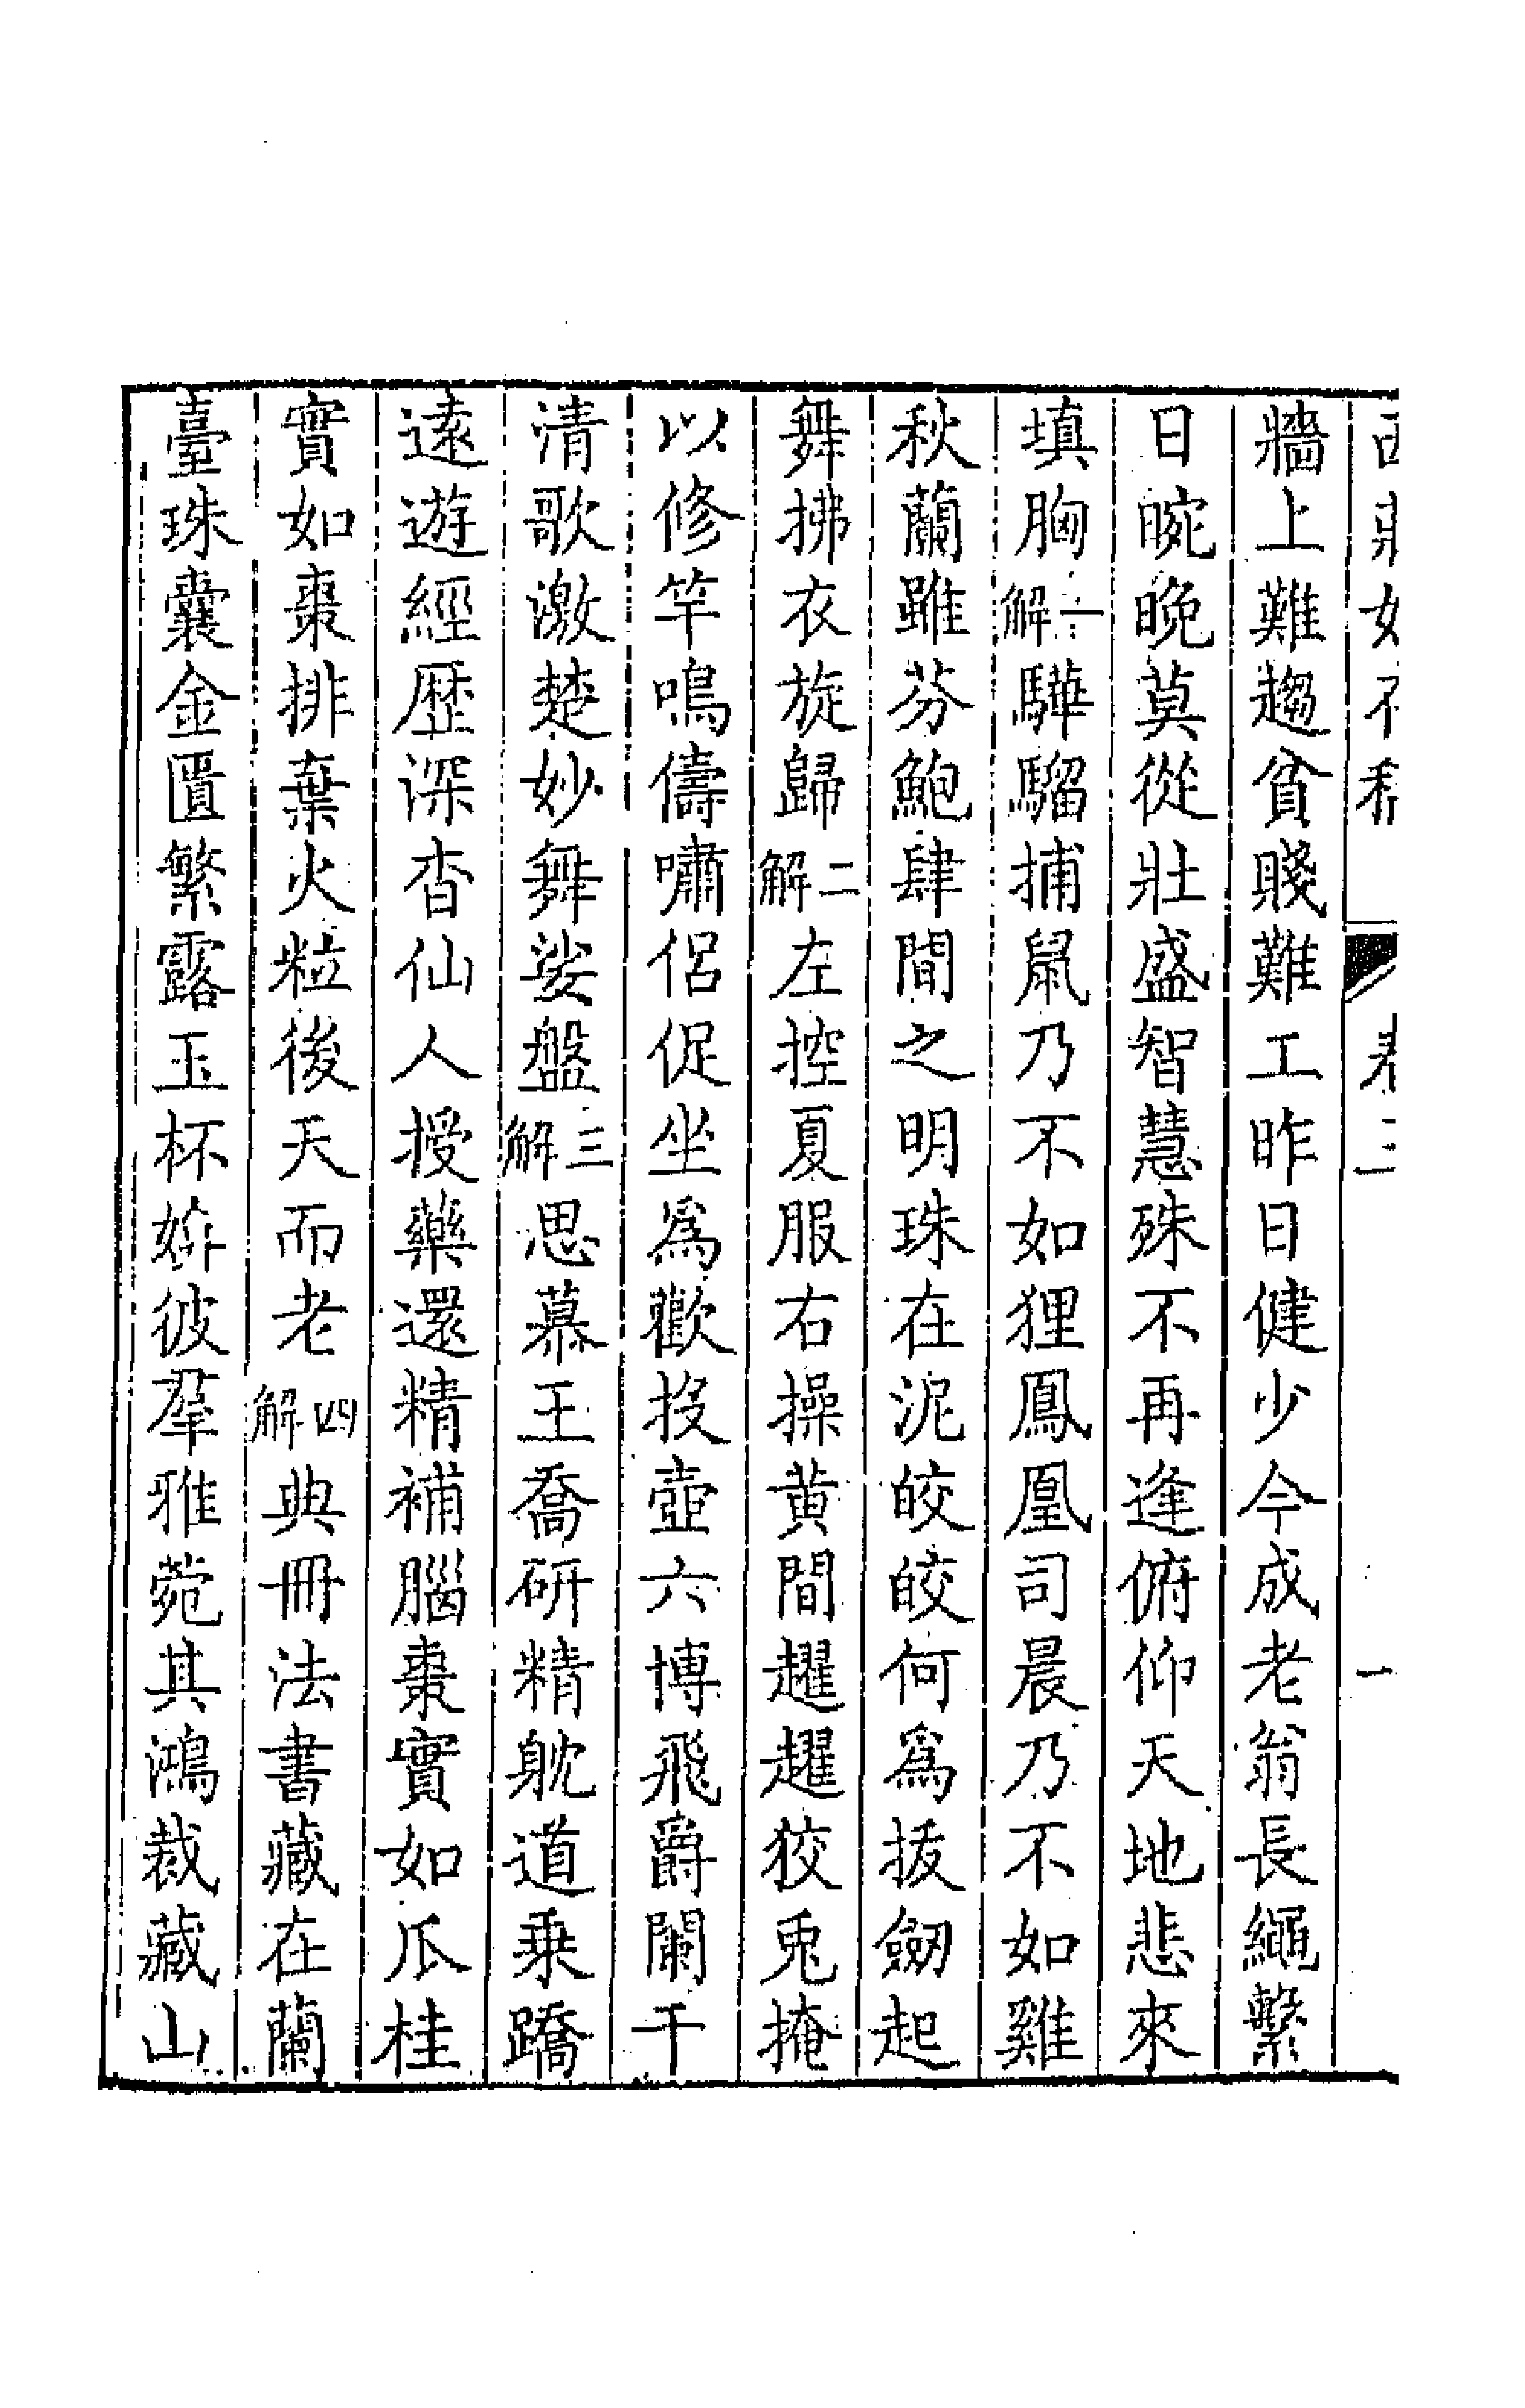 牆上難趨貧賤難工昨日健少今成老翁長繩繫
日晼晚莫從壯盛智慧殊不再逢俯仰天地悲來
填胸一解驊騮捕鼠乃不如狸鳳凰司晨乃不如雞
秋蘭雖芬鮑肆間之明珠在泥皎皎何爲拔劒起
舞拂衣旋歸二解左控夏服右操黄間趯趯狡兎掩
以修竿鳴儔嘯侣促坐爲歡投壺六博飛爵闌干
清歌激楚妙舞娑盤三解思慕王喬研精躭道乘蹻
逺遊經歴深杳仙人授藥還精補腦棗實如瓜桂
實如棗排棄火粒後天而老四解典冊法書藏在蘭
臺珠囊金匱繁露玉杯妳彼羣雅菀其鴻裁藏山
卷三
一